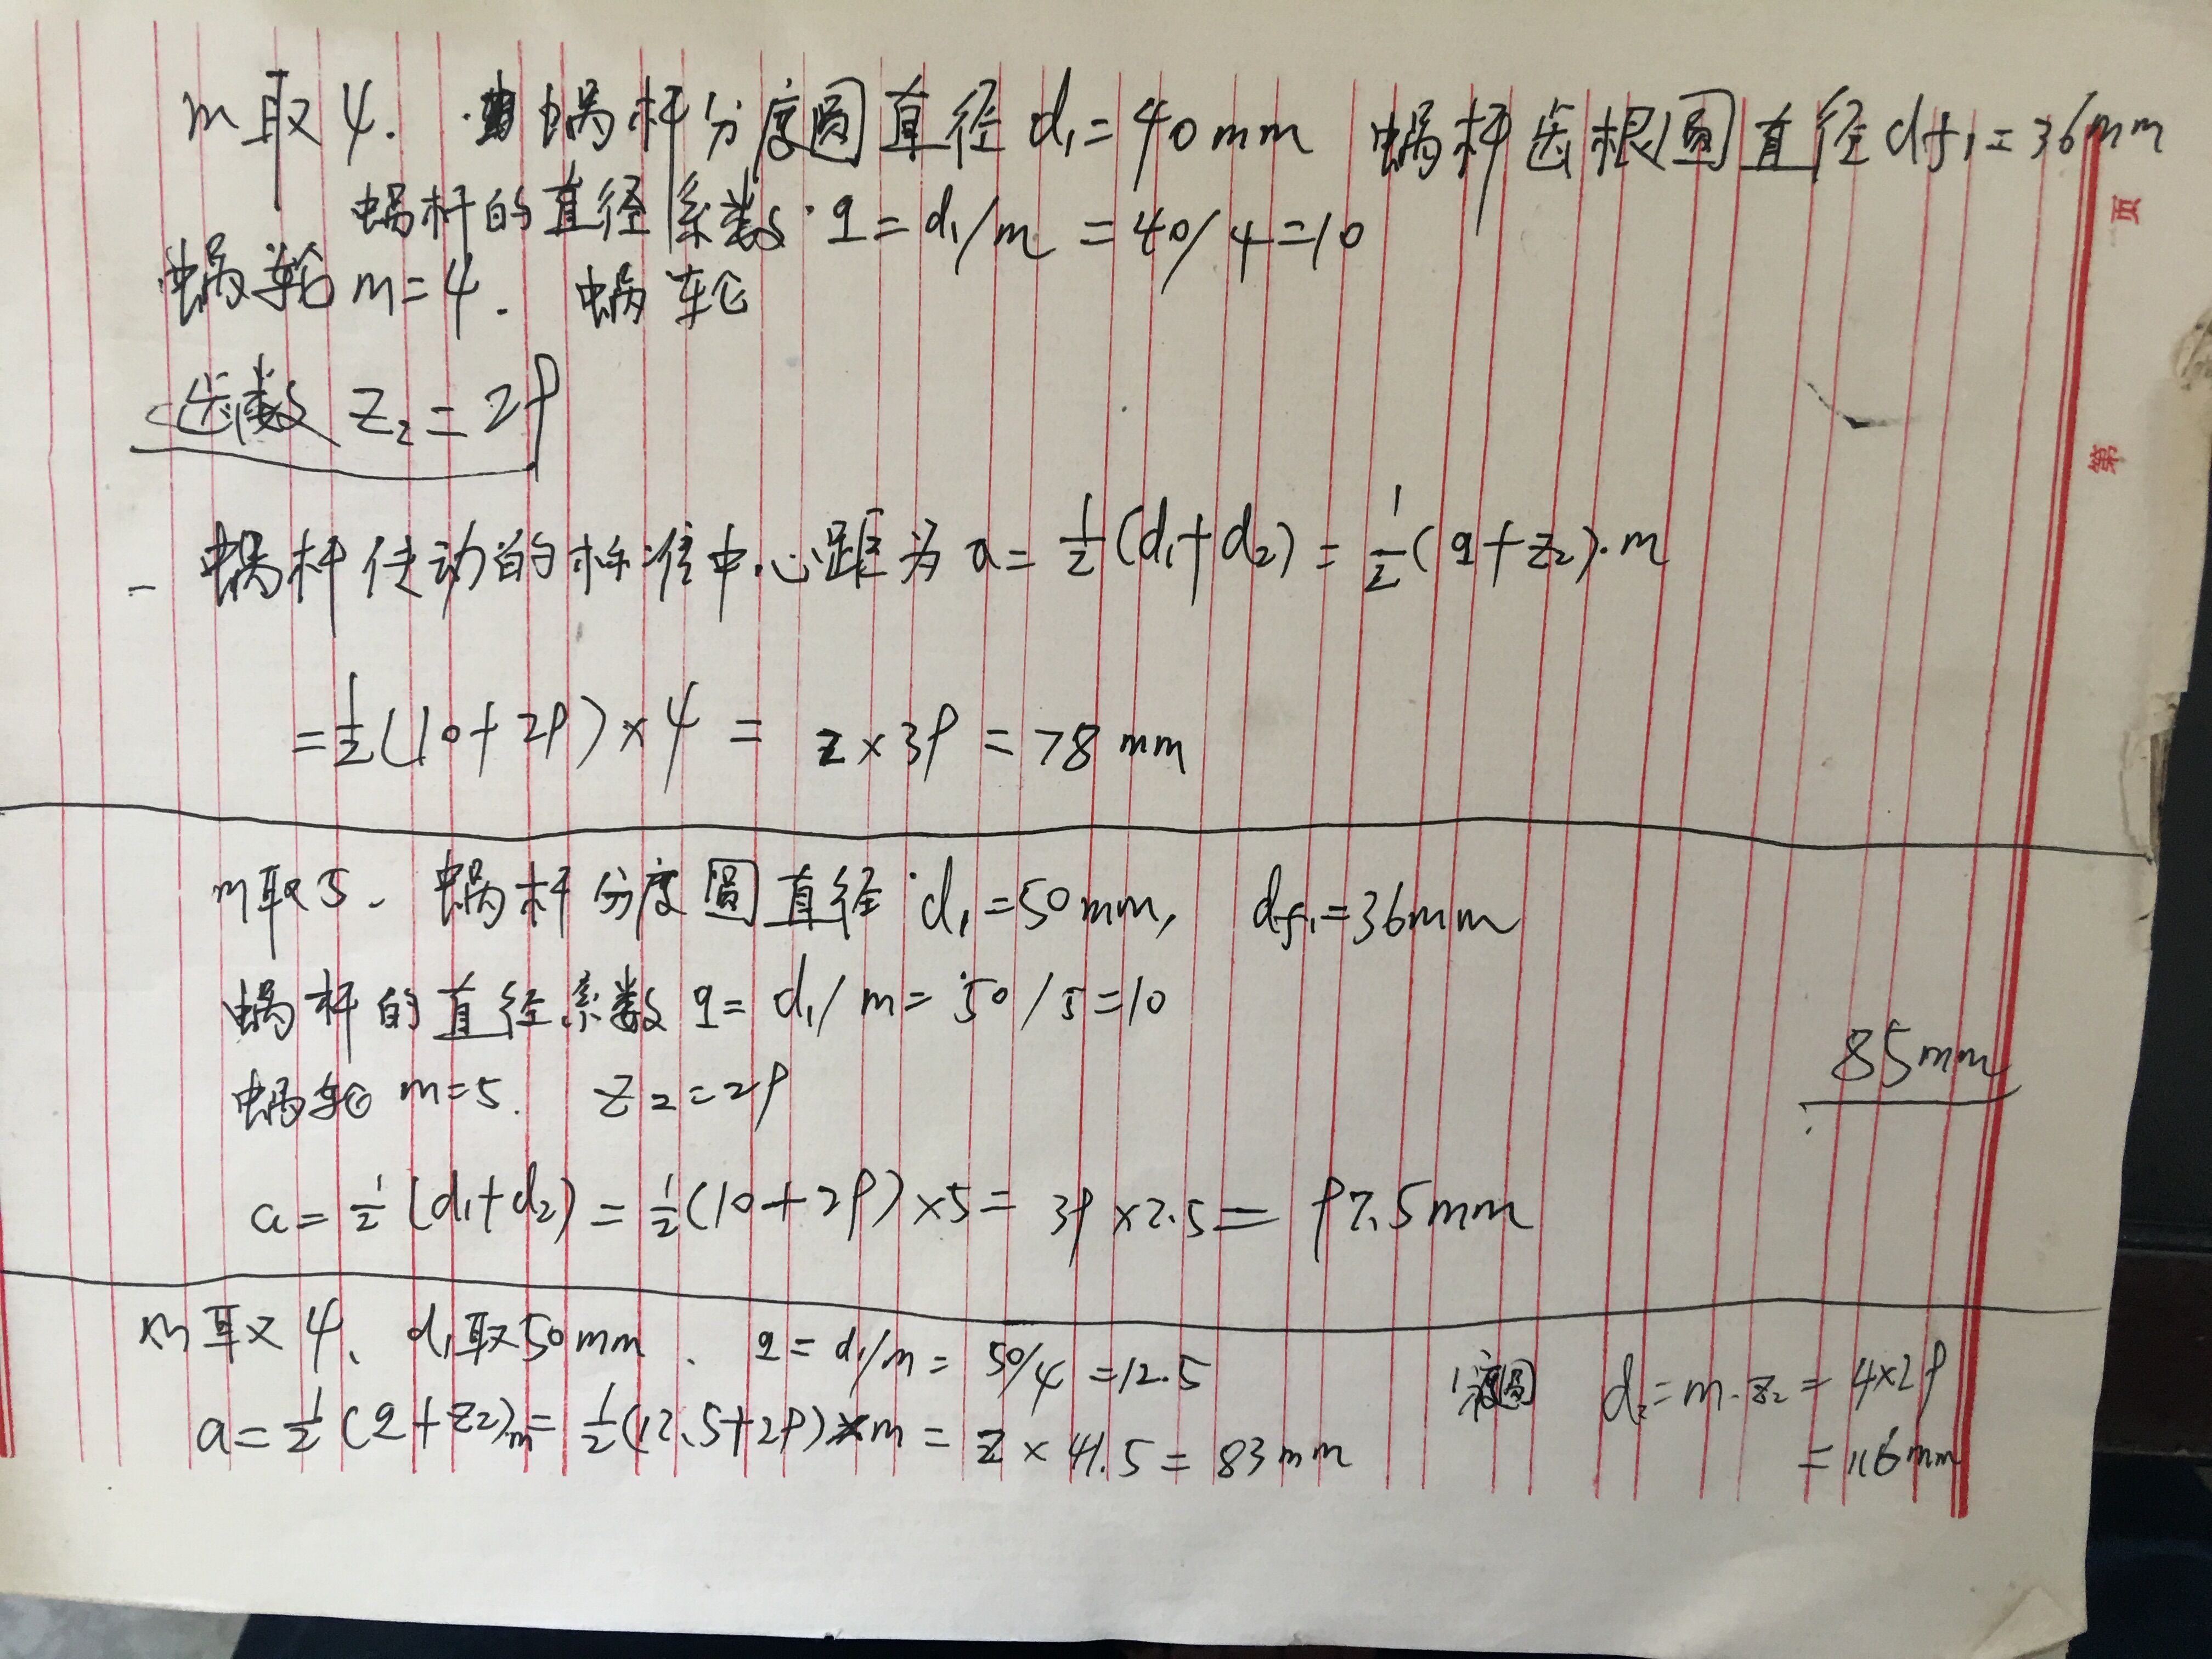 m取4. 蜗杆分度圆直径d₁=40mm 蜗杆齿根圆直径df₁=36mm
蜗杆的直径系数q=d₁/m=40/4=10
蜗轮m=4. 蜗轮
齿数 z₂=29
蜗杆传动的标准中心距为 a=½(d₁+d₂)=½(q+z₂)·m
=½(10+29)×4=2×39=78mm
m取5、蜗杆分度圆直径d₁=50mm, df₁=36mm
蜗杆的直径系数q=d₁/m=50/5=10
85mm
蜗轮 m=5. z₂=29
a=½(d₁+d₂)=½(10+29)×5=39×2.5=97.5mm
m取4、d₁取50mm、q=d₁/m=50/4=12.5
度圆 d₂=m·z₂=4×29
a=½(q+z₂)m=½(12.5+29)×m=2×41.5=83mm
=116mm
页
第